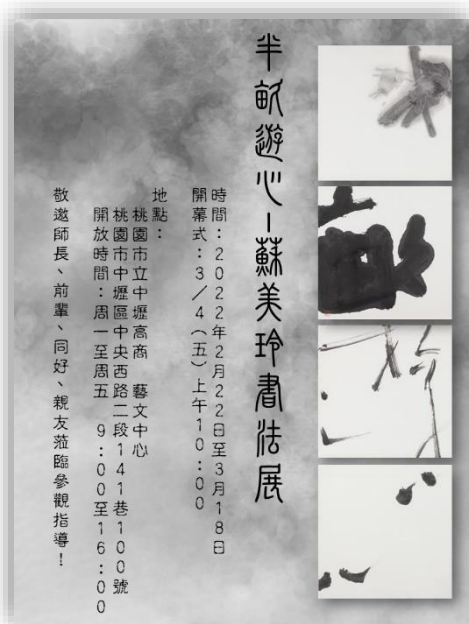 半畝遊心－蘇美玲書法展
時間：2022年2月22日至3月18日
開幕式：3／4（五）上午10：00
地點：
桃園市立中壢高商 藝文中心
桃園市中壢區中央西路二段141巷100號
開放時間：周一至周五 9：00至16：00
敬邀師長、前輩、同好、親友蒞臨參觀指導！